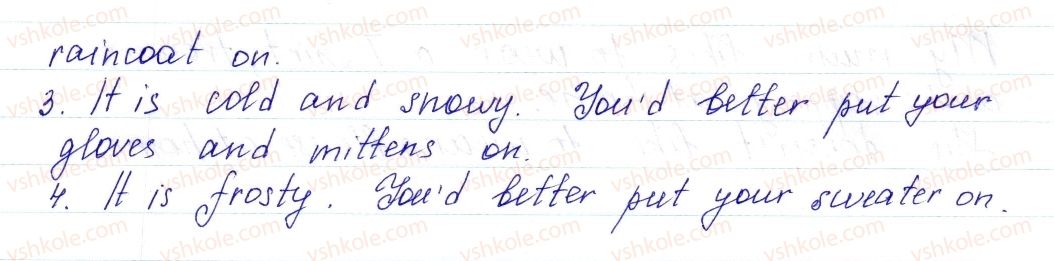 raincoat on.
3. It is cold and snowy. You'd better put your
gloves and mittens on.
4. It is frosty. You'd better put your sweater on.